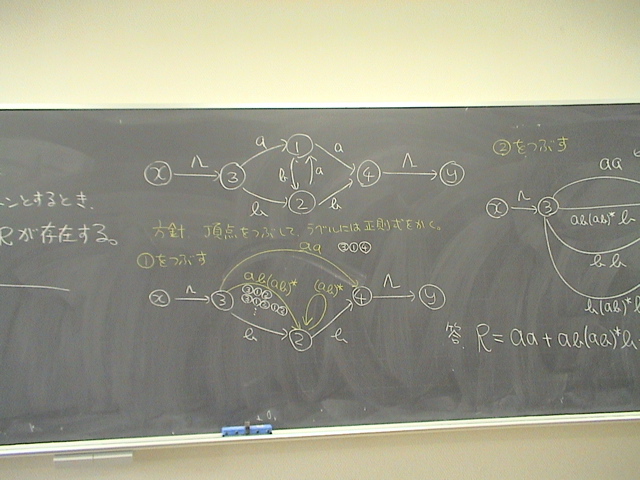 ンとするとき、
Rが存在する。
x Λ 3 a 1 a 4 Λ y
b a
b 2 b
方針 頂点をつぶして、ラベルには正則式をかく。
①をつぶす
aa ③①④
x Λ 3 ab(ab)* (ab)* 4 Λ y
③①②
③①②①②
⋮
b 2 b
②をつぶす
aa
x Λ 3
ab(ab)* b
b b
b(ab)* b
答 R = aa + ab(ab)* b